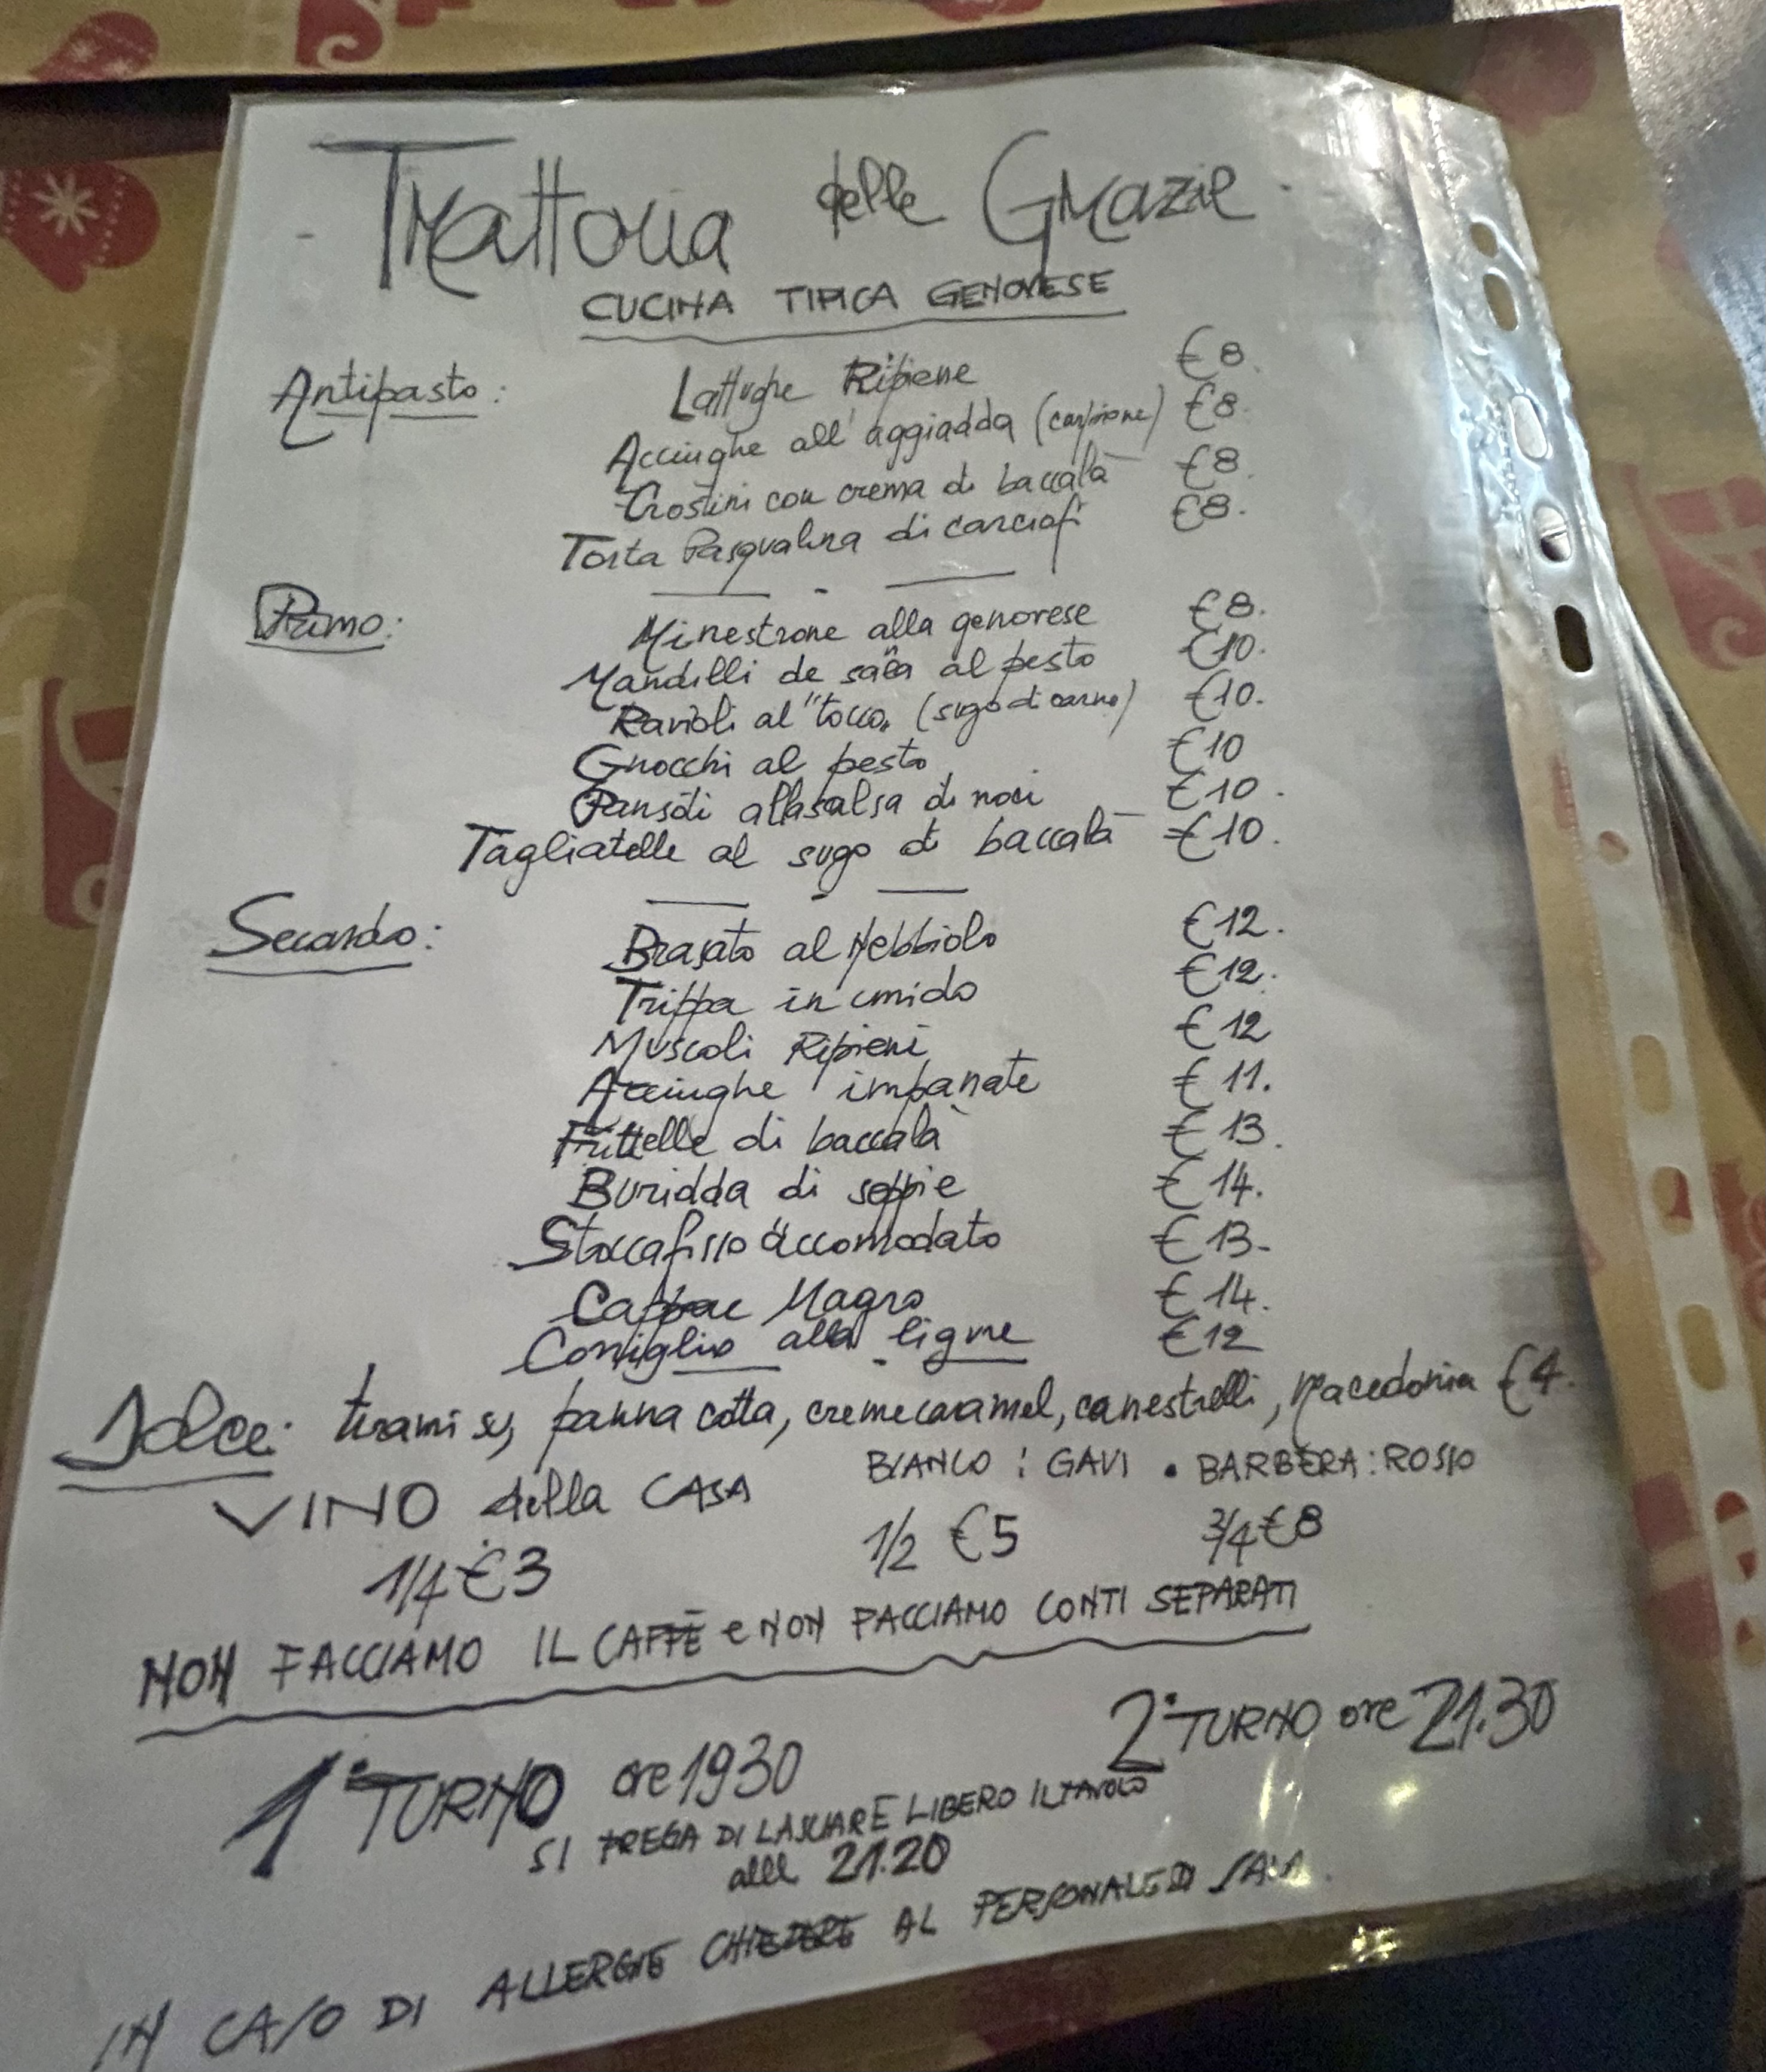 Trattoria delle Grazie
CUCINA TIPICA GENOVESE
Antipasto: Lattughe Ripiene €8.
Acciughe all'aggiadda (carpione) €8.
Crostini con crema di baccalà €8.
Torta Pasqualina di carciofi €8.
Primo: Minestrone alla genovese €8.
Mandilli de sâea al pesto €10.
Ravioli al "tocco" (sugo di carne) €10.
Gnocchi al pesto €10
Pansöti alla salsa di noci €10.
Tagliatelle al sugo di baccalà €10.
Secondo: Brasato al Nebbiolo €12.
Trippa in umido €12.
Muscoli Ripieni €12
Acciughe impanate €11.
Frittelle di baccalà €13.
Buridda di seppie €14.
Stoccafisso accomodato €13-
Cappon Magro €14.
Coniglio alla ligure €12
Dolce: tirami su, panna cotta, creme caramel, canestrelli, Macedonia €4.
VINO della CASA BIANCO: GAVI • BARBERA: ROSSO
1/4 €3 1/2 €5 3/4 €8
NON FACCIAMO IL CAFFÈ e NON FACCIAMO CONTI SEPARATI
1° TURNO ore 1930 2° TURNO ore 21.30
SI PREGA DI LASCIARE LIBERO IL TAVOLO
alle 21.20
IN CASO DI ALLERGIE CHIEDERE AL PERSONALE DI SALA.